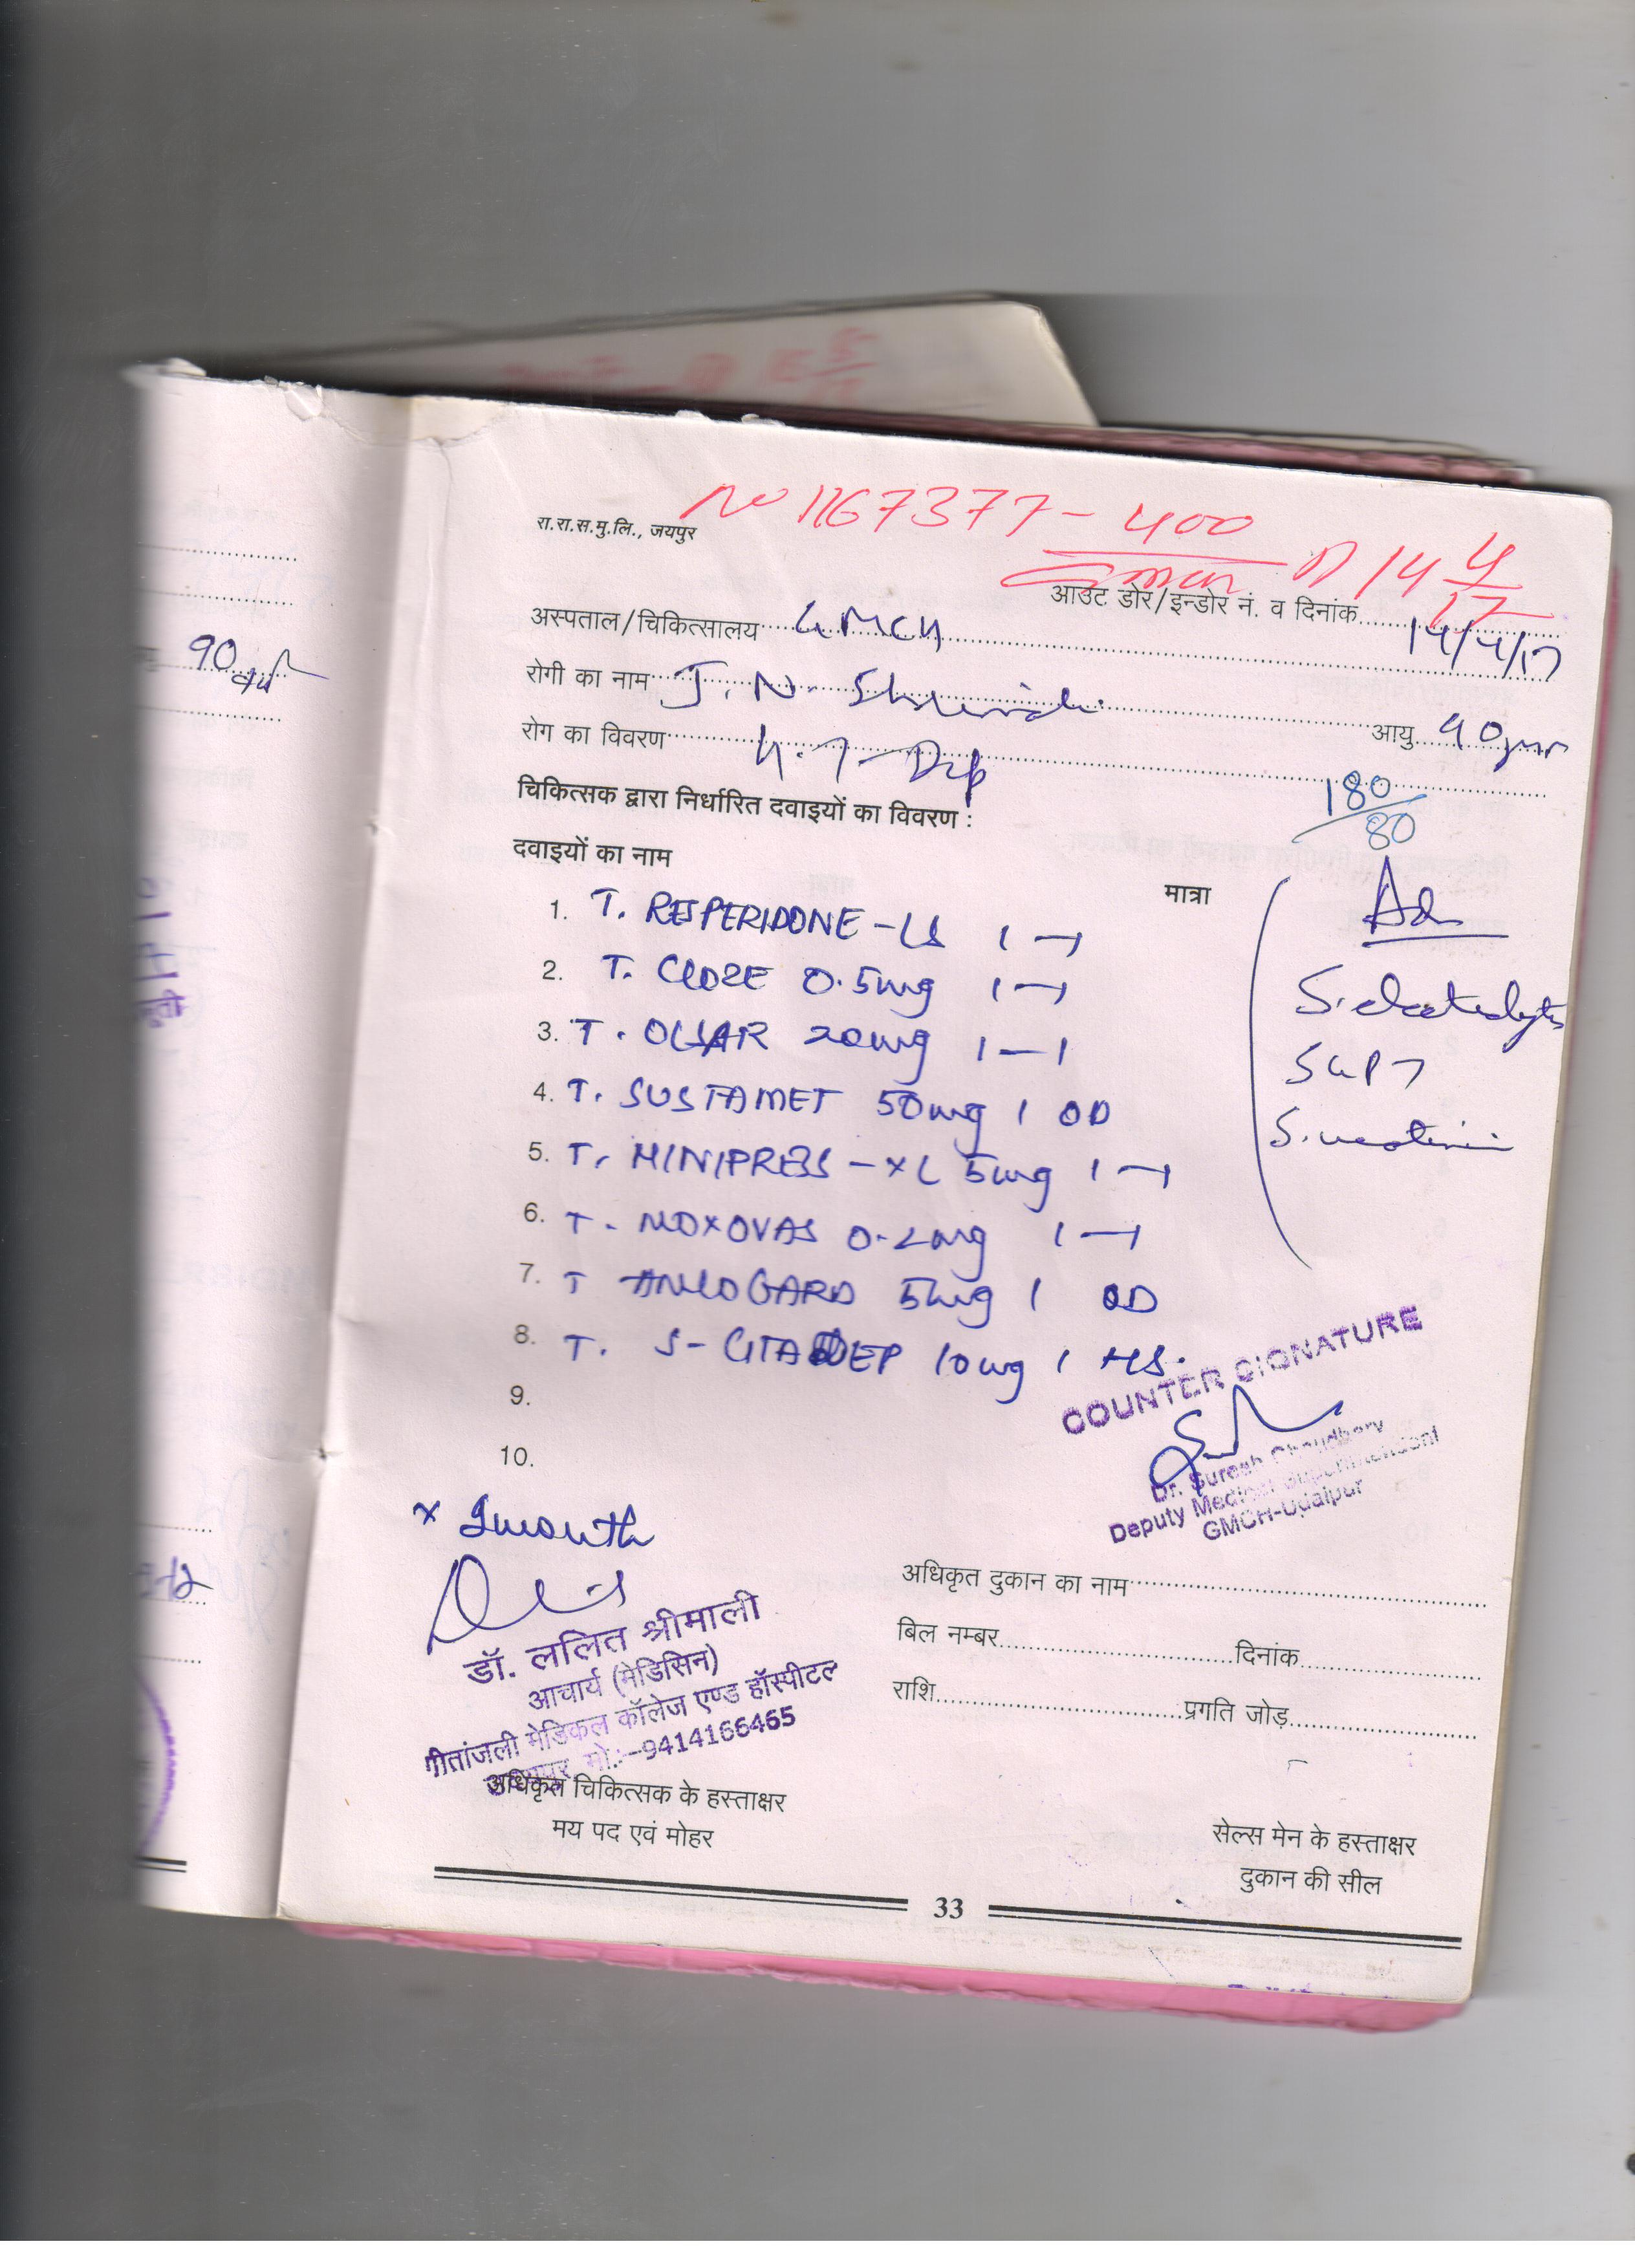 No 1167377-400
रा.रा.स.मु.लि., जयपुर
D 14 4/17
आउट डोर/इन्डोर नं. व दिनांक 14/4/17
अस्पताल/चिकित्सालय GMCH
रोगी का नाम J. N.
आयु 90
रोग का विवरण H.T- Dep
180/80
चिकित्सक द्वारा निर्धारित दवाइयों का विवरण :
दवाइयों का नाम
मात्रा
Ad
1. T. RESPERIDONE-LS 1—1
2. T. CLOZE 0.5mg 1—1
S. electrolytes
3. T. OLSAR 20mg 1—1
4. T. SUSTAMET 50mg 1 OD
5. T. MINIPRESS-XL 5mg 1—1
6. T. MOXOVAS 0.2mg 1—1
7. T AMLOGARD 5mg 1 OD
8. T. S-CITADEP 10mg 1 HS.
9.
10.
COUNTER SIGNATURE
Dr. Suresh Choudhary
Deputy Medical Superintendent
GMCH-Udaipur
x 1month
डॉ. ललित श्रीमाली
आचार्य (मेडिसिन)
गीतांजली मेडिकल कॉलेज एण्ड हॉस्पीटल
मो.:-9414166465
अधिकृत चिकित्सक के हस्ताक्षर
मय पद एवं मोहर
अधिकृत दुकान का नाम
बिल नम्बर दिनांक
राशि प्रगति जोड़
सेल्स मेन के हस्ताक्षर
दुकान की सील
33